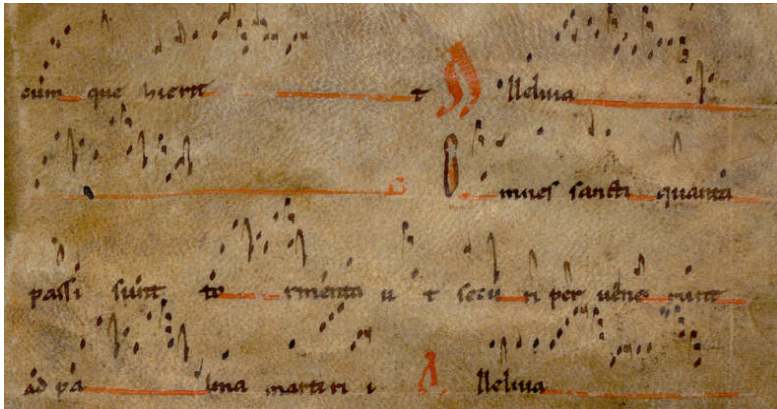 cum que hierit Alleluia
Omnes sancti quanta
passi sunt tormenta ut securi pervenerunt
ad palma martirii Alleluia